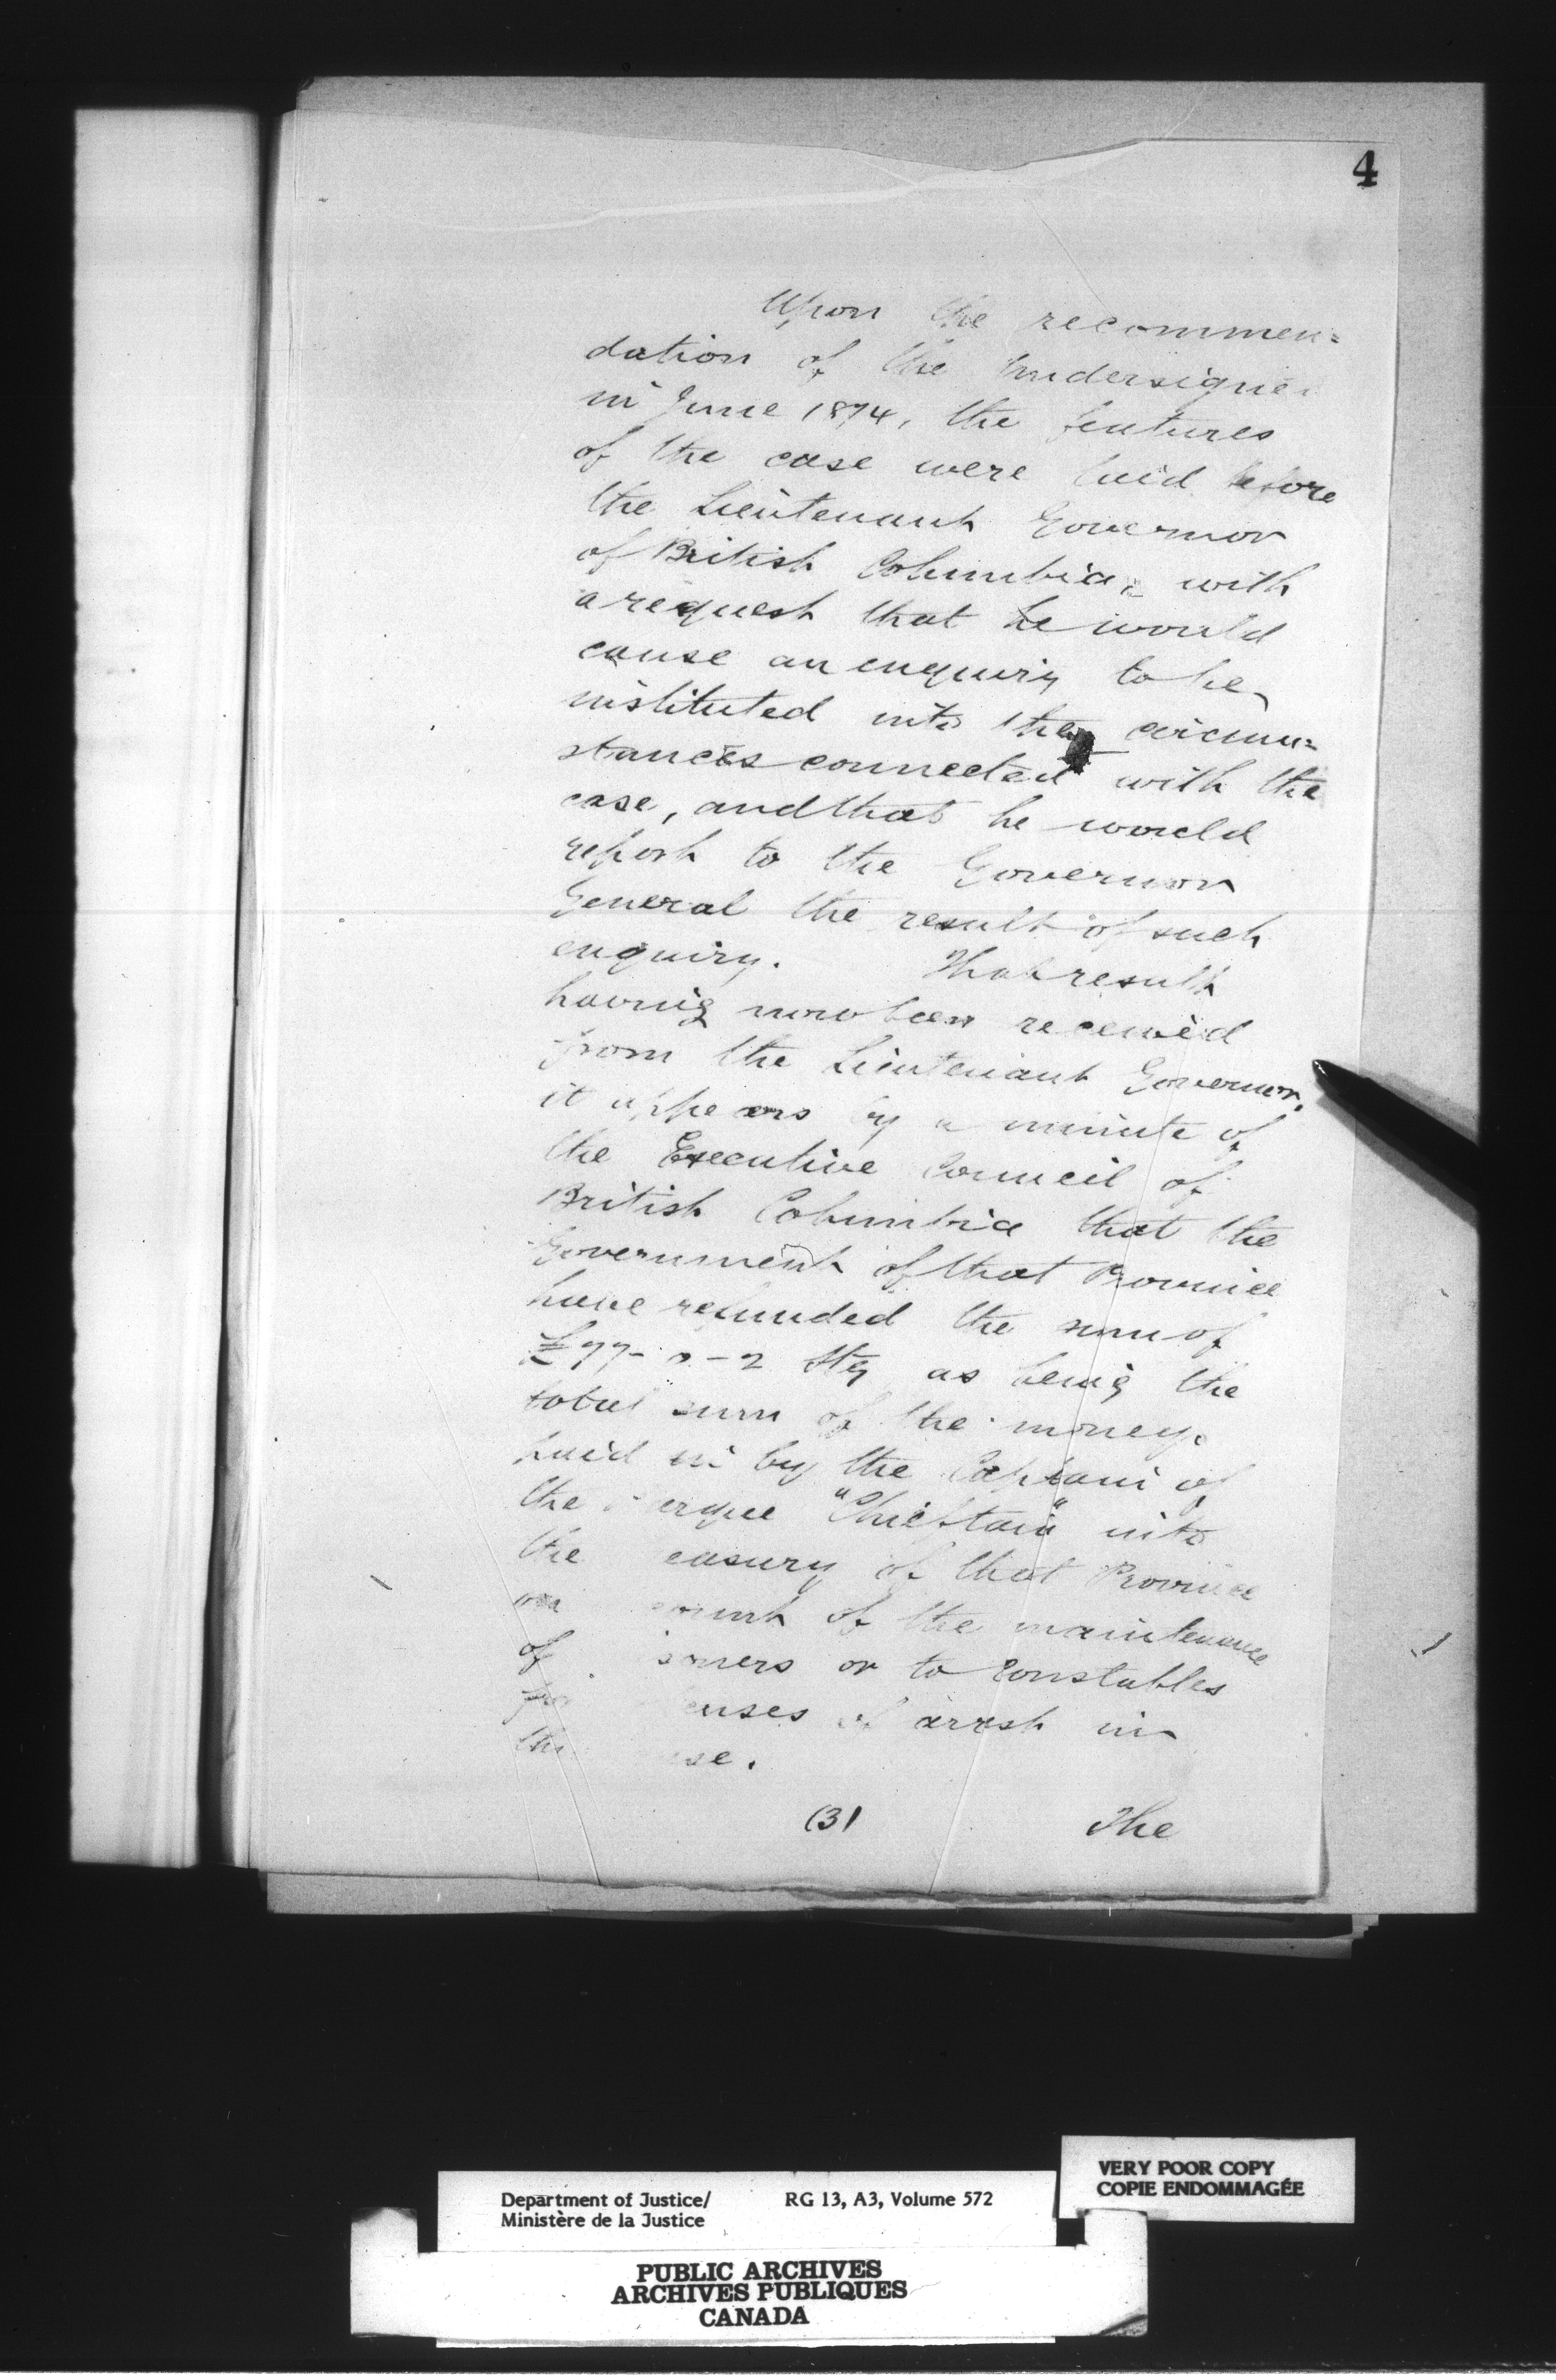 4
Upon the recommen=
dation of the Undersigned
in June 1874, the features
of the case were laid before
the Lieutenant Governor
of British Columbia, with
a request that he would
cause an enquiry to be
instituted into the circum=
stances connected with the
case, and that he would
report to the Governor
General the result of such
enquiry. That result
having now been received
from the Lieutenant Governor,
it appears by a minute of
the Executive Council of
British Columbia that the
Government of that Province
have refunded the sum of
Stg as being the
total sum of the money
paid in by the Captain of
the arque "Chieftain" into
the easury of that Province
on ount of the maintenance
of soners or to Constables
for enses of arrest in
the se.
(3) The
VERY POOR COPY
COPIE ENDOMMAGÉE
Department of Justice/ RG 13, A3, Volume 572
Ministère de la Justice
PUBLIC ARCHIVES
ARCHIVES PUBLIQUES
CANADA